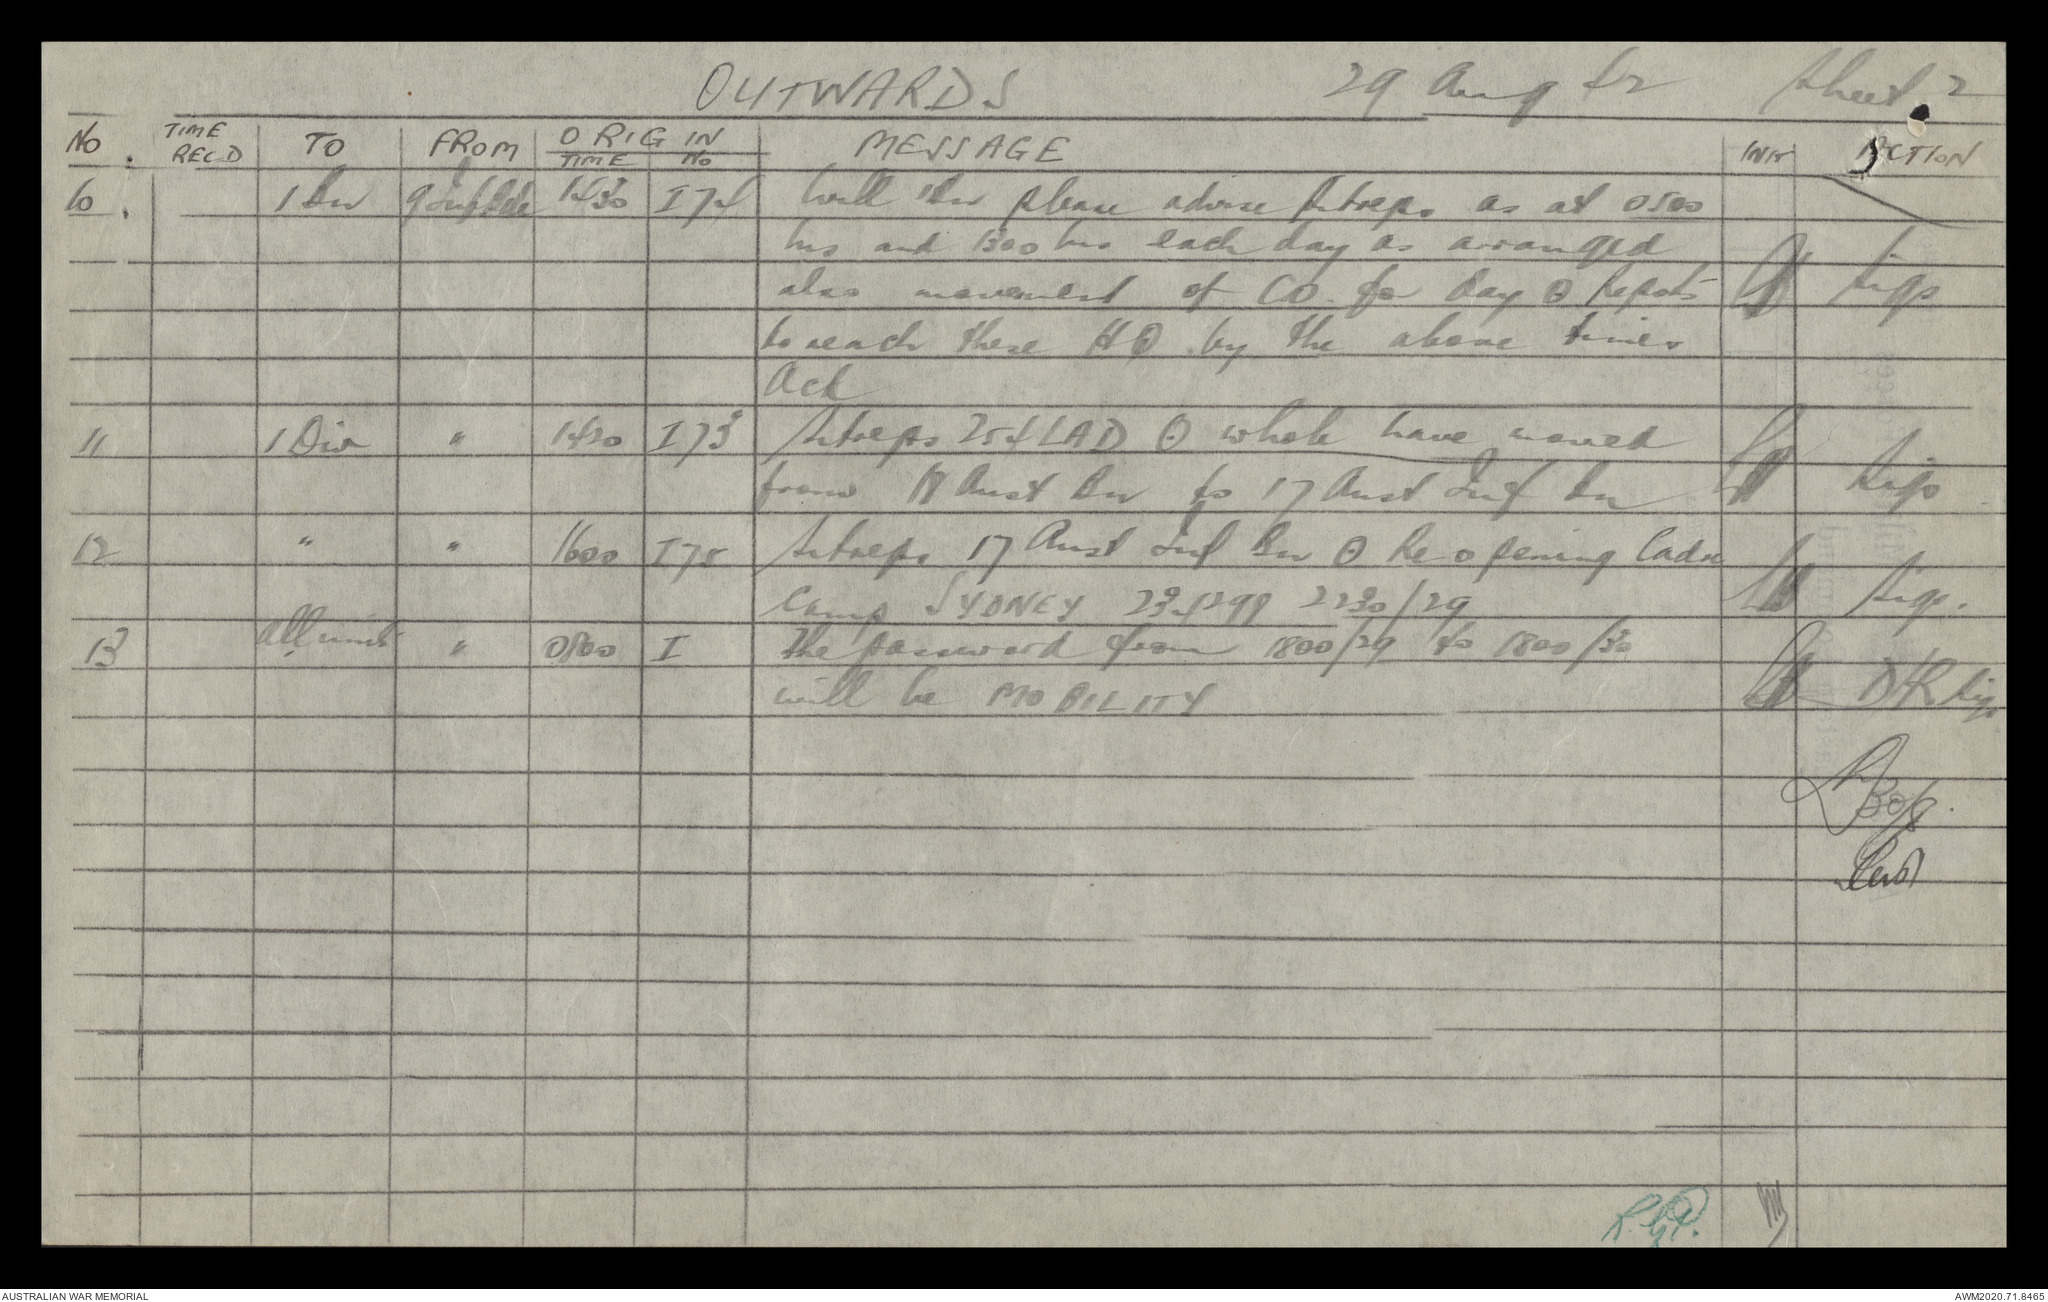 OUTWARDS 29 Aug 42 Sheet 2
No. TIME REC.D TO FROM ORIGIN TIME No MESSAGE INIT ACTION
10 1 Div 9 Inf Bde 1430 I 74 Will 1 Div please advise Sitreps as at 0500
hrs and 1300 hrs each day as arranged
also movement of CO. for day Θ Reports Sigs
to reach these HQ by the above times
Ack
11 1 Div " 1420 I 73 Sitreps 254 LAD Θ whole have moved
from Aust Bn to 17 Aust Inf Bn Sigs
12 " " 1600 I 75 Sitreps 17 Aust Inf Bn Θ Reopening Cadre
Camp SYDNEY 2230/29 Sigs.
13 all units " I The password from 1800/29 to 1800/30
will be MOBILITY DR Sigs
AUSTRALIAN WAR MEMORIAL AWM2020.71.8465